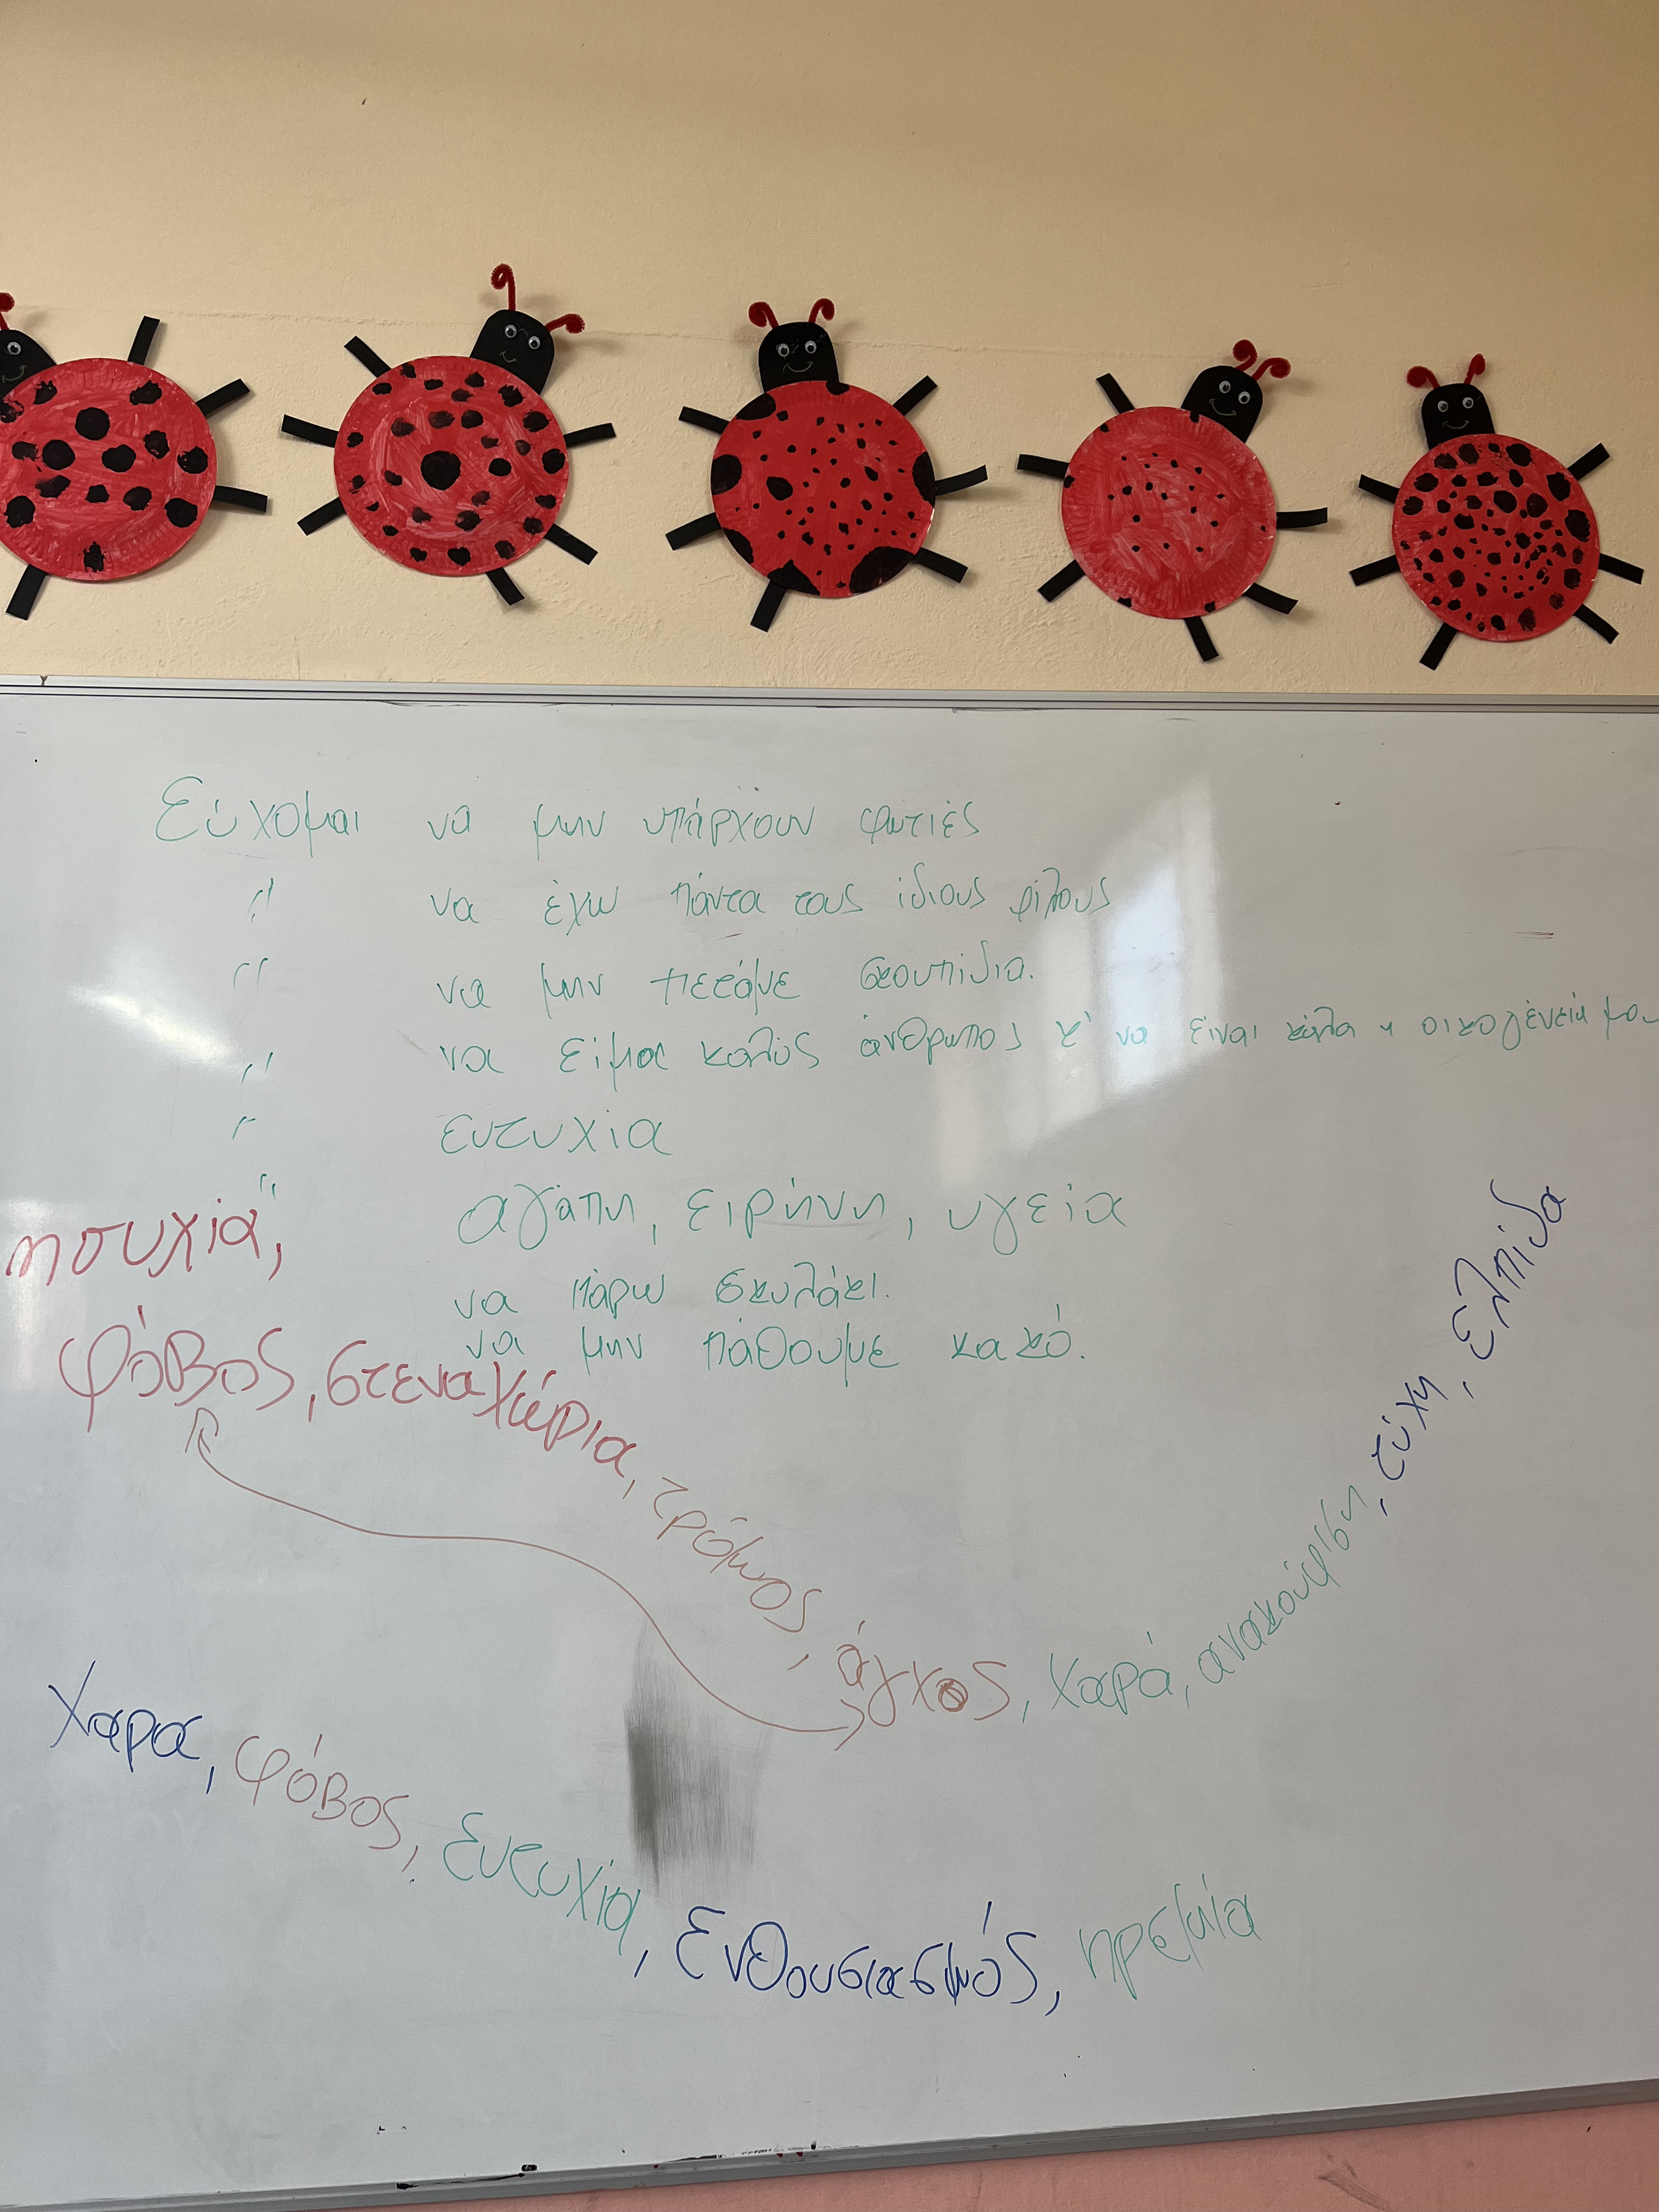 Εύχομαι να μην υπάρχουν φωτιές
" να έχω πάντα τους ίδιους φίλους
" να μην πετάμε σκουπίδια.
" να είμαι καλός άνθρωπος κ' να είναι καλά η οικογένειά μου
" ευτυχία
" αγάπη, ειρήνη, υγεία
ησυχία,
να πάρω σκυλάκι.
να μην πάθουμε κακό.
φόβος, στεναχώρια, τρόμος, άγχος, χαρά, ανακούφιση, τύχη, ελπίδα
Χαρα, φόβος, ευτυχία, ενθουσιασμός, ηρεμία